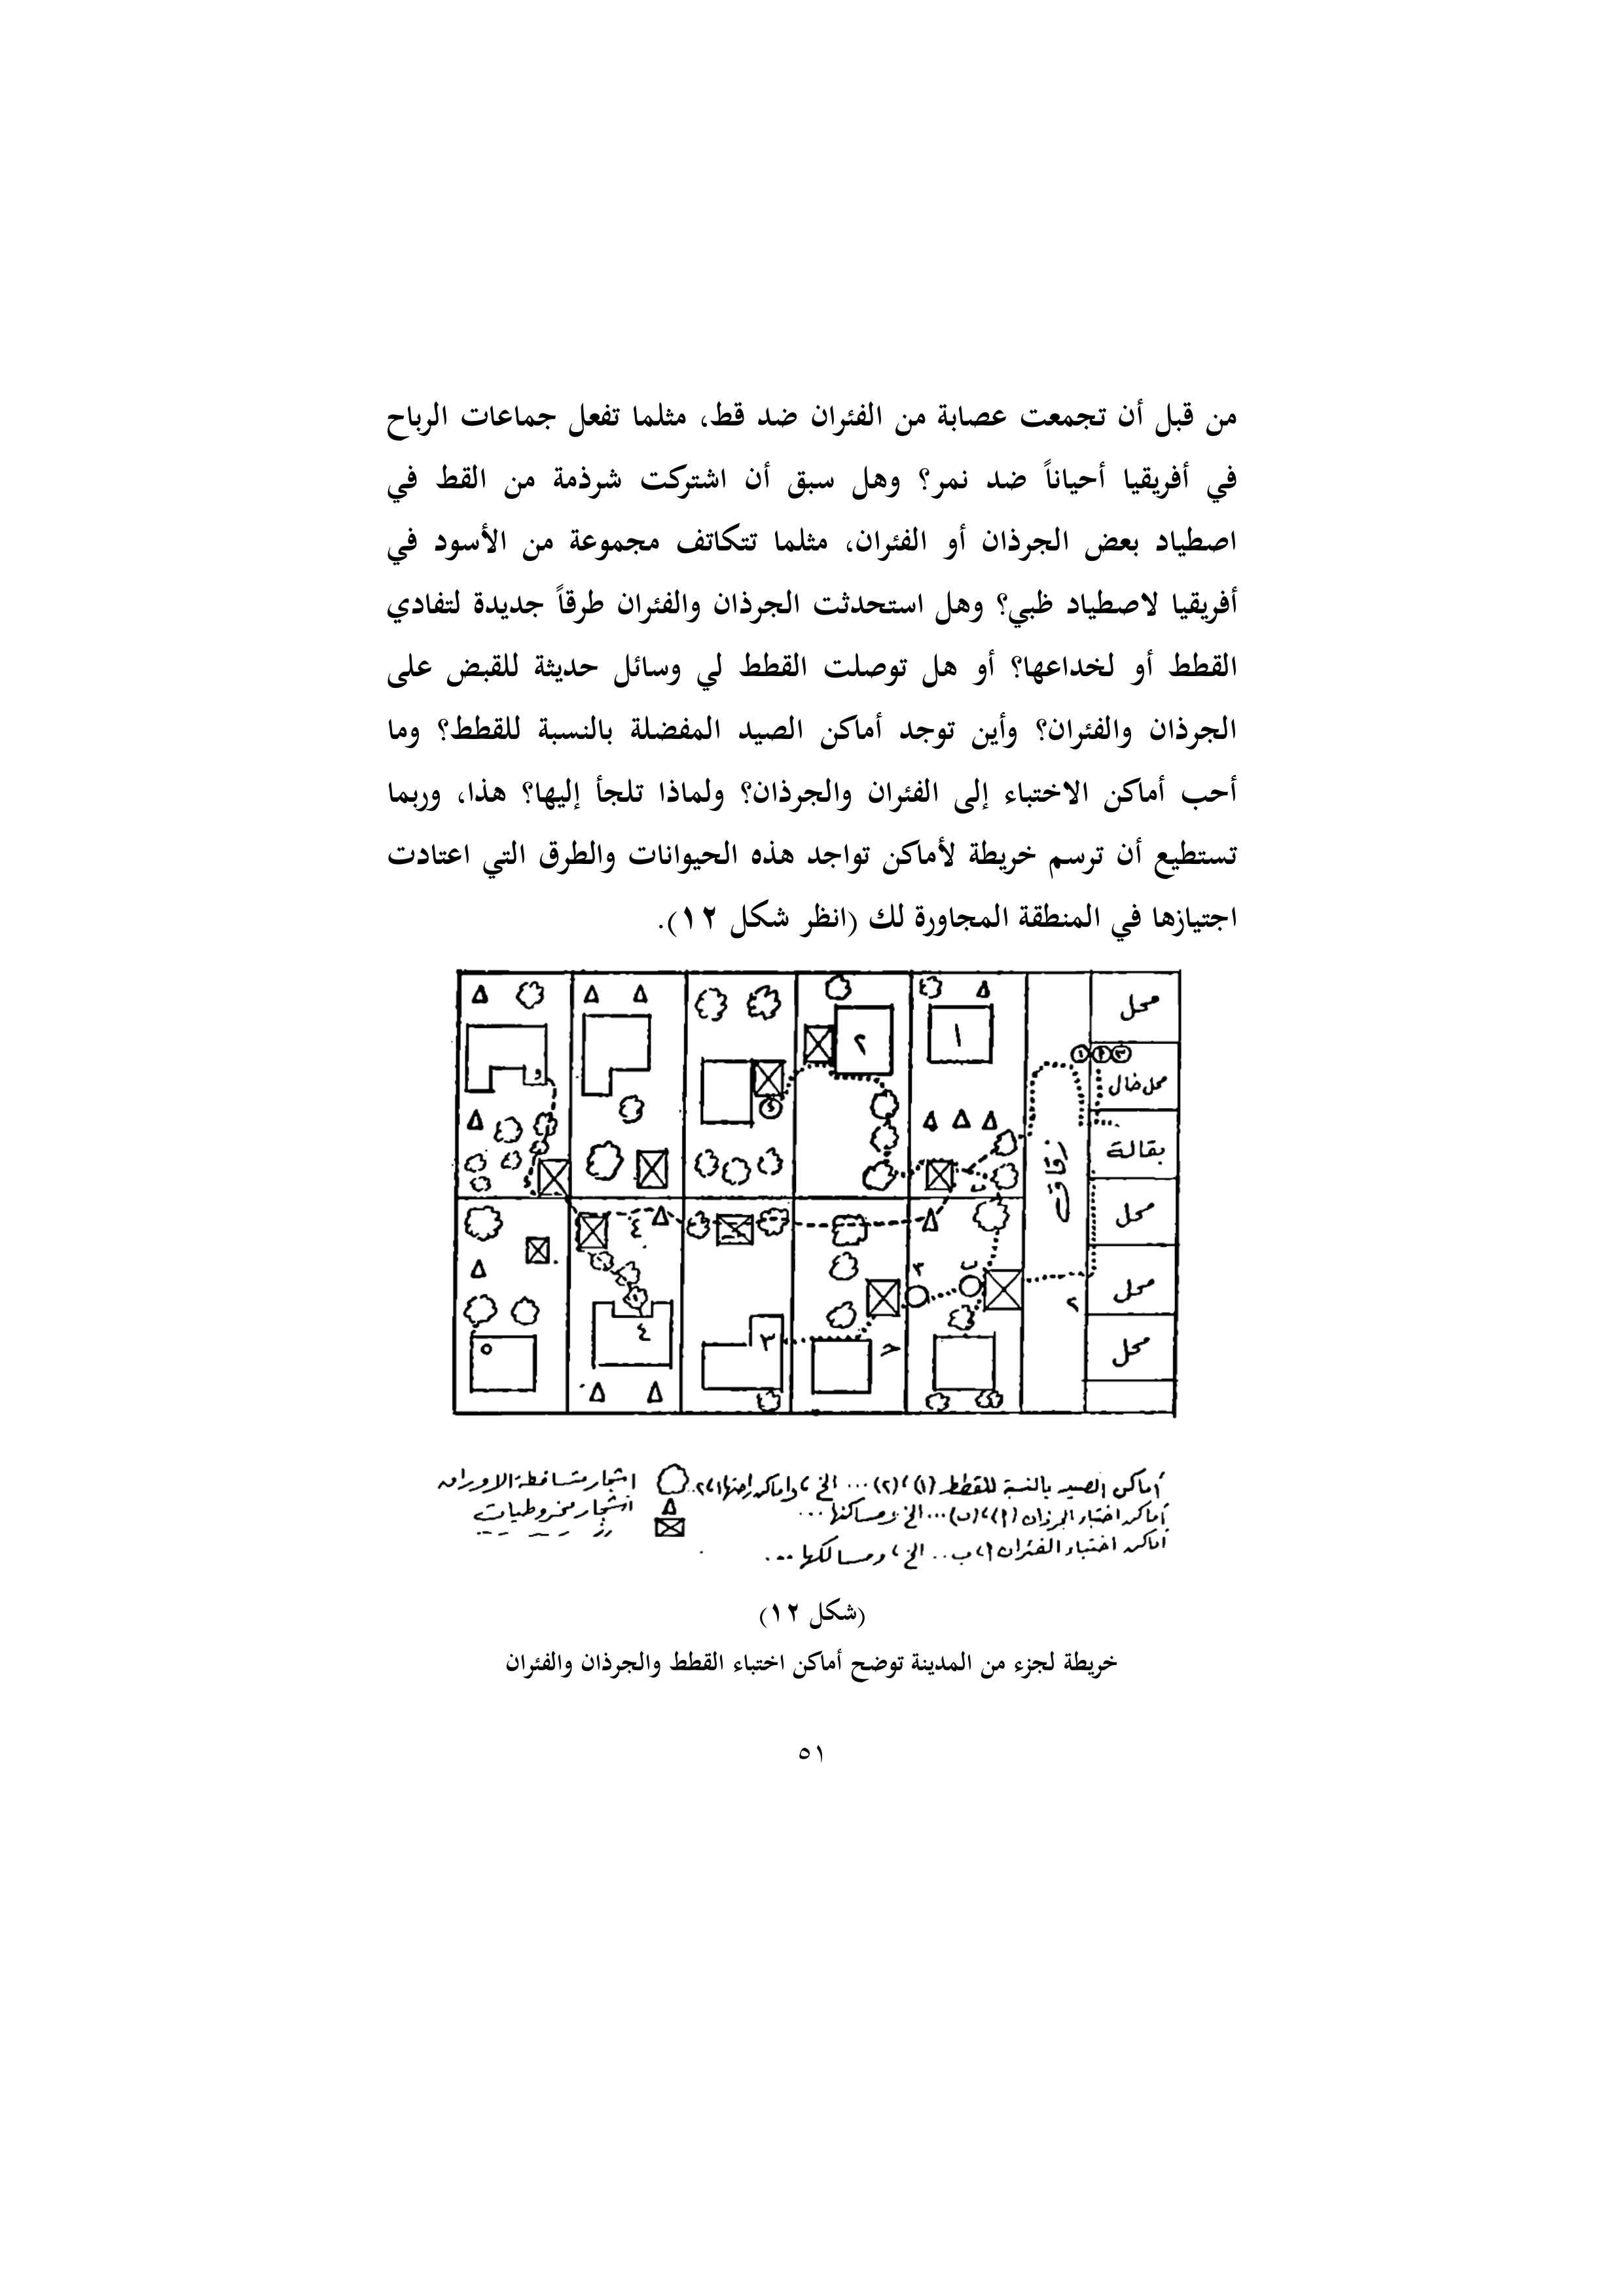 من قبل أن تجمعت عصابة من الفئران ضد قط، مثلما تفعل جماعات الرباح
في أفريقيا أحياناً ضد نمر؟ وهل سبق أن اشتركت شرذمة من القط في
اصطياد بعض الجرذان أو الفئران، مثلما تتكاتف مجموعة من الأسود في
أفريقيا لاصطياد ظبي؟ وهل استحدثت الجرذان والفئران طرقاً جديدة لتفادي
القطط أو لخداعها؟ أو هل توصلت القطط لي وسائل حديثة للقبض على
الجرذان والفئران؟ وأين توجد أماكن الصيد المفضلة بالنسبة للقطط؟ وما
أحب أماكن الاختباء إلى الفئران والجرذان؟ ولماذا تلجأ إليها؟ هذا، وربما
تستطيع أن ترسم خريطة لأماكن تواجد هذه الحيوانات والطرق التي اعتادت
اجتيازها في المنطقة المجاورة لك (انظر شكل ١٢).
محل
١ ٢ ٣
محل خال
بقالة
محل
محل
محل
زقاق
١
٢
و
ب
٤
٣
ب
٢
٣
٤
٥
أماكن الصيد بالنسبة للقطط (١)، (٢) ... الخ، وأماكن راحتها ١، ٢
أماكن اختباء الجرذان (أ)، (ب) ... الخ ومساكنها ...
أماكن اختباء الفئران أ، ب .. الخ، ومسالكها ...
اشجار متساقطة الاوراق
اشجار مخروطيات
(شكل ١٢)
خريطة لجزء من المدينة توضح أماكن اختباء القطط والجرذان والفئران
٥١